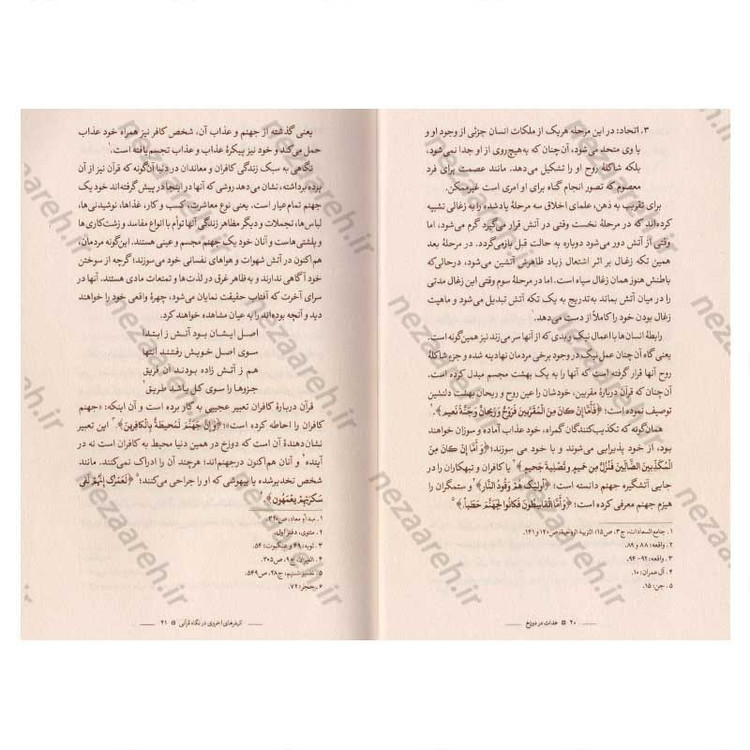 ۳. اتحاد: در این مرحله هریک از ملکات انسان جزئی از وجود او و
با وی متحد می‌شود، آن‌چنان که به‌هیچ‌روی از او جدا نمی‌شود،
بلکه شاکلهٔ روح او را تشکیل می‌دهد. مانند عصمت برای فرد
معصوم که تصور انجام گناه برای او امری است غیرممکن.
برای تقریب به ذهن، علمای اخلاق سه مرحلهٔ یادشده را به زغالی تشبیه
کرده‌اند که در مرحلهٔ نخست وقتی در آتش قرار می‌گیرد گرم می‌شود، اما
وقتی از آتش دور می‌شود دوباره به حالت قبل بازمی‌گردد. در مرحلهٔ بعد
همین تکه زغال بر اثر اشتعال زیاد ظاهرش آتشین می‌شود، درحالی‌که
باطنش هنوز همان زغال سیاه است. اما در مرحلهٔ سوم وقتی این زغال مدتی
را در میان آتش بماند به‌تدریج به یک تکه آتش تبدیل می‌شود و ماهیت
زغال بودن خود را کاملاً از دست می‌دهد.
رابطهٔ انسان‌ها با اعمال نیک و بدی که از آنها سر می‌زند نیز همین‌گونه است.
یعنی گاه آن‌چنان عمل نیک در وجود برخی مردمان نهادینه شده و جزء شاکلهٔ
روح آنها قرار گرفته است که آنها را به یک بهشت مجسم مبدل کرده است.
آن‌چنان که قرآن دربارهٔ مقربین، خودشان را عین روح و ریحان بهشت دلنشین
توصیف نموده است: «فَأَمَّا إِن كَانَ مِنَ الْمُقَرَّبِينَ فَرَوْحٌ وَرَيْحَانٌ وَجَنَّةُ نَعِيمٍ».
همان‌گونه که تکذیب‌کنندگان گمراه، خود عذاب آماده و سوزان خواهند
بود، از خود پذیرایی می‌شوند و با خود می سوزند؛ «وَ أَمَّا إِن كَانَ مِنَ
الْمُكَذِّبِينَ الضَّالِّينَ فَنُزُلٌ مِنْ حَمِيمٍ وَ تَصْلِيَةُ جَحِيمٍ» یا کافران و تبهکاران را در
جایی آتشگیره جهنم دانسته است؛ «أُولئِكَ هُمْ وَقُودُ النَّارِ» و ستمگران را
هیزم جهنم معرفی کرده است؛ «وَ أَمَّا الْقَاسِطُونَ فَكَانُوا لِجَهَنَّمَ حَطَباً».
۱. جامع السعادات، ج۳، ص۱۵؛ التربیه الروحیه، ص۱۲۰ و ۱۴۱.
۲. واقعه: ۸۸ و ۸۹.
۳. واقعه: ۹۲-۹۴.
۴. آل عمران: ۱۰.
۵. جن: ۱۵.
۲۰ عذاب در دوزخ
یعنی گذشته از جهنم و عذاب آن، شخص کافر نیز همراه خود عذاب
حمل می‌کند و خود نیز پیکرهٔ عذاب و عذاب تجسم یافته است.
نگاهی به سبک زندگی کافران و معاندان در دنیا آن‌گونه که قرآن نیز از آن
پرده برداشته، نشان می‌دهد روشی که آنها در اینجا در پیش گرفته‌اند خود یک
جهنم تمام عیار است. یعنی نوع معاشرت، کسب و کار، غذاها، نوشیدنی‌ها،
لباس‌ها، تجملات و دیگر مظاهر زندگی آنها توأم با انواع مفاسد و زشت‌کاری‌ها
و پلشتی هاست و آنان خود یک جهنم مجسم و عینی هستند. این‌گونه مردمان،
هم‌اکنون در آتش شهوات و هواهای نفسانی خود می‌سوزند؛ گرچه از سوختن
خود آگاهی ندارند و به‌ظاهر غرق در لذت‌ها و تمتعات مادی هستند. آنها در
سرای آخرت که آفتاب حقیقت نمایان می‌شود، چهرهٔ واقعی خود را خواهند
دید و آنچه بوده‌اند را به عیان مشاهده خواهند کرد.
اصل ایشان بود آتش ز ابتدا
سوی اصل خویش رفتند انتها
هم ز آتش زاده بودند آن فریق
جزوها را سوی کل باشد طریق
قرآن دربارهٔ کافران تعبیر عجیبی به کار برده است و آن اینکه: «جهنم
کافران را احاطه کرده است»؛ «وَ إِنَّ جَهَنَّمَ لَمُحِيطَةٌ بِالْكَافِرِينَ».
نشان‌دهندهٔ آن است که دوزخ در همین دنیا محیط به کافران است نه در
آینده و آنان هم‌اکنون درجهنم‌اند؛ هرچند آن را ادراک نمی‌کنند. مانند
شخص تخدیرشده یا بیهوشی که او را جراحی می‌کنند؛ «لَعَمْرُكَ إِنَّهُمْ لَفِي
سَكْرَتِهِمْ يَعْمَهُونَ».
۱. مبدأ و معاد، ص
۲. مثنوی، دفتر اول.
۳. توبه: ۴۹ و عنکبوت: ۵۴.
۴. المیزان، ج۹، ص۳۰۵.
۵. تفسیر تسنیم، ج۲۸، ص۵۴۹.
۶. حجر: ۷۲.
کیفرهای اخروی در نگاه قرآنی ۲۱
nezaareh.ir
nezaareh.ir
nezaareh.ir
nezaareh.ir
nezaareh.ir
nezaareh.ir